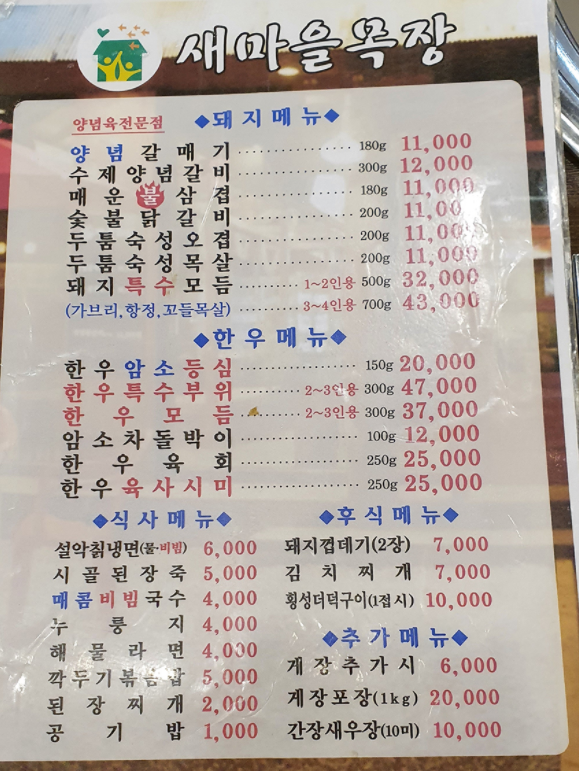 새마을목장
양념육전문점 ◆돼지메뉴◆
양념갈매기 180g 11,000
수제양념갈비 300g 12,000
매운불삼겹 180g 11,000
숯불닭갈비 200g 11,000
두툼숙성오겹 200g 11,000
두툼숙성목살 200g 11,000
돼지특수모듬 1~2인용 500g 32,000
(가브리,항정,꼬들목살) 3~4인용 700g 43,000
◆한우메뉴◆
한우암소등심 150g 20,000
한우특수부위 2~3인용 300g 47,000
한우모듬 2~3인용 300g 37,000
암소차돌박이 100g 12,000
한우육회 250g 25,000
한우육사시미 250g 25,000
◆식사메뉴◆
설악칡냉면(물·비빔) 6,000
시골된장죽 5,000
매콤비빔국수 4,000
누룽지 4,000
해물라면 4,000
깍두기볶음밥 5,000
된장찌개 2,000
공기밥 1,000
◆후식메뉴◆
돼지껍데기(2장) 7,000
김치찌개 7,000
횡성더덕구이(1접시) 10,000
◆추가메뉴◆
게장추가시 6,000
게장포장(1kg) 20,000
간장새우장(10미) 10,000